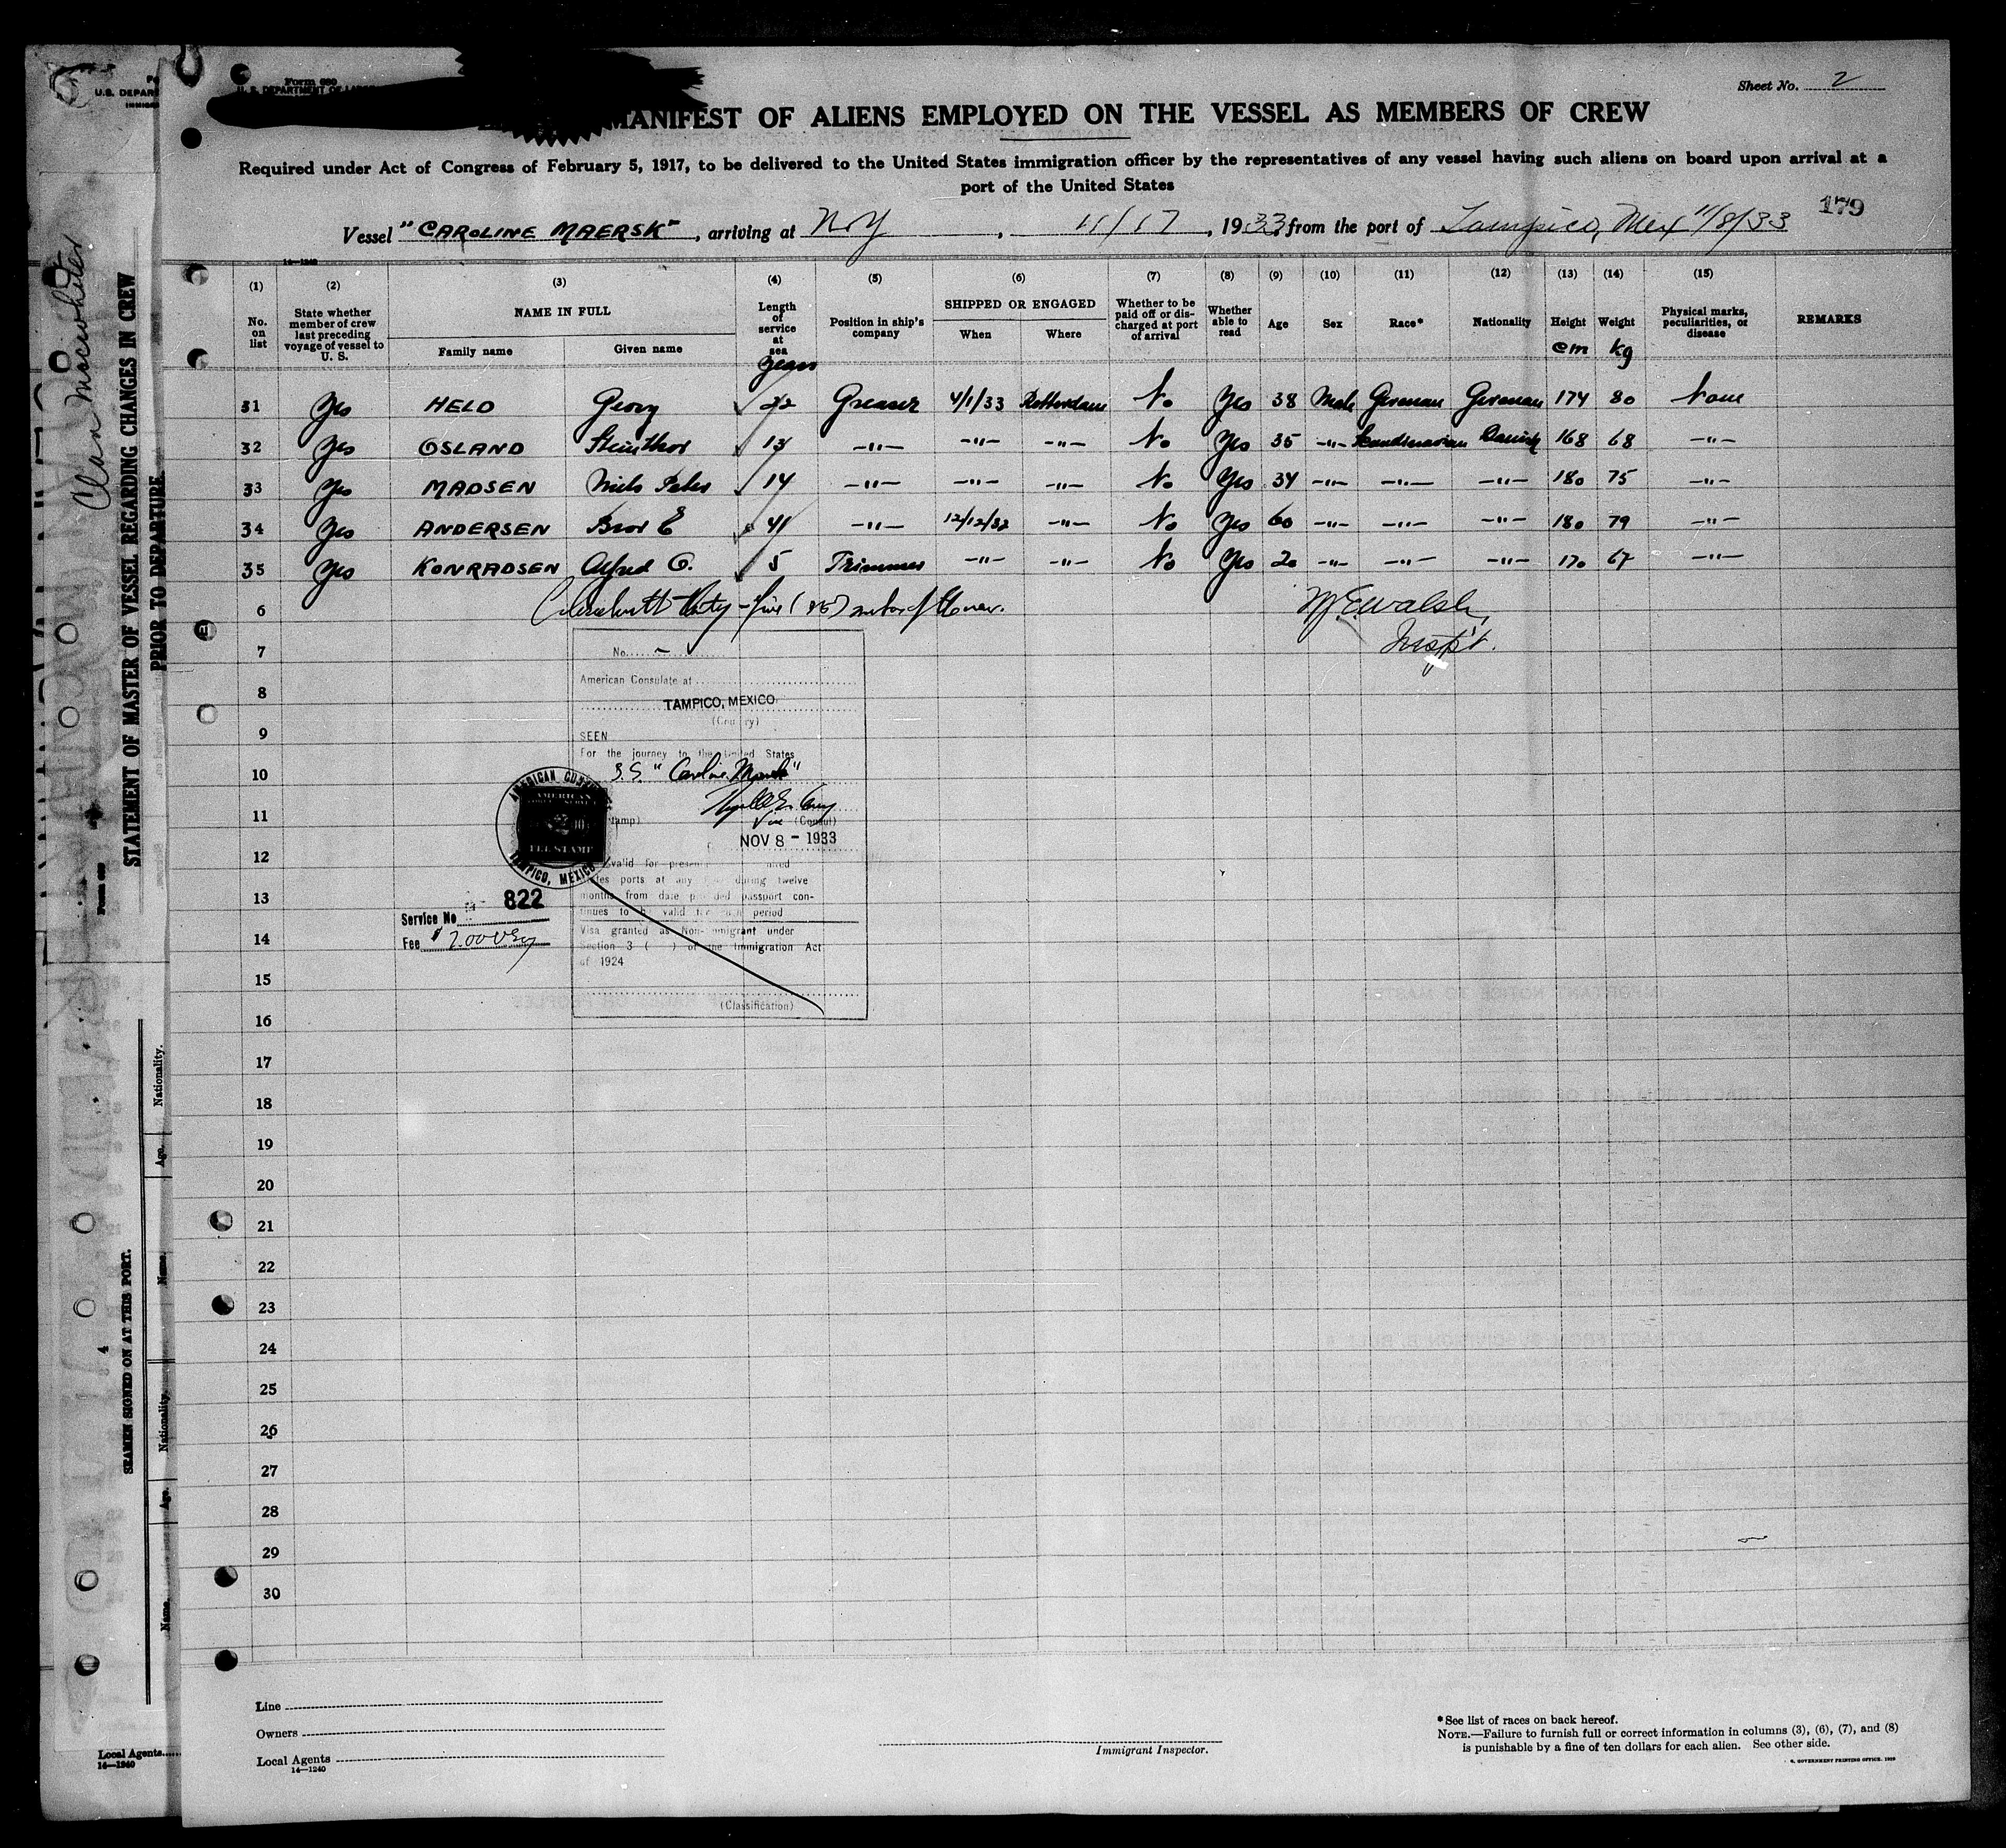 Form 680
U. S. DEPARTMENT OF LABOR
Sheet No. 2
MANIFEST OF ALIENS EMPLOYED ON THE VESSEL AS MEMBERS OF CREW
Required under Act of Congress of February 5, 1917, to be delivered to the United States immigration officer by the representatives of any vessel having such aliens on board upon arrival at a
port of the United States
179
Vessel "CAROLINE MAERSK", arriving at N.Y, 11/17, 1933, from the port of Tampico, Mex 11/8/33
14—1240
(1) (2) (3) (4) (5) (6) (7) (8) (9) (10) (11) (12) (13) (14) (15)
No. on list
State whether member of crew last preceding voyage of vessel to U. S.
NAME IN FULL
Family name Given name
Length of service at sea
years
Position in ship's company
SHIPPED OR ENGAGED
When Where
Whether to be paid off or discharged at port of arrival
Whether able to read
Age
Sex
Race*
Nationality
Height
cm
Weight
kg
Physical marks, peculiarities, or disease
REMARKS
31 Yes HELD Georg 22 Greaser 4/1/33 Rotterdam No Yes 38 Male German German 174 80 None
32 Yes OSLAND Steinthor 13 -"- -"- -"- No Yes 35 -"- Scandinavian Danish 168 68 -"-
33 Yes MADSEN Niels Peter 14 -"- -"- -"- No Yes 34 -"- -"- -"- 180 75 -"-
34 Yes ANDERSEN Bror E 41 -"- 12/12/32 -"- No Yes 60 -"- -"- -"- 180 79 -"-
35 Yes KONRADSEN Alfred C. 5 Trimmer -"- -"- No Yes 20 -"- -"- -"- 170 67 -"-
6 Thirty-five (35)
W. E. Walsh
Insp't.
7
8
9
10
11
12
13
14
15
16
17
18
19
20
21
22
23
24
25
26
27
28
29
30
No.
American Consulate at
TAMPICO, MEXICO
(Country)
SEEN
For the journey to the United States
S.S. "Caroline Maersk"
Vice (Consul)
NOV 8 - 1933
months from date provided passport con-
tinues to be valid for such period
Visa granted as Non-immigrant under
Section 3 ( ) of the Immigration Act
of 1924
(Classification)
AMERICAN CONSULATE
TAMPICO, MEXICO
AMERICAN
FEE STAMP
Service No 822
Fee $2.00
Line
Owners
Local Agents
14—1240
Immigrant Inspector.
*See list of races on back hereof.
NOTE.—Failure to furnish full or correct information in columns (3), (6), (7), and (8)
is punishable by a fine of ten dollars for each alien. See other side.
GOVERNMENT PRINTING OFFICE
U.S. DEPAR
Clan Macwhirter
STATEMENT OF MASTER OF VESSEL REGARDING CHANGES IN CREW
PRIOR TO DEPARTURE
Form 689
SEAMEN SIGNED ON AT THIS PORT.
4
Nationality.
Age.
Name.
Nationality.
Age.
Name.
Local Agents
14—1240